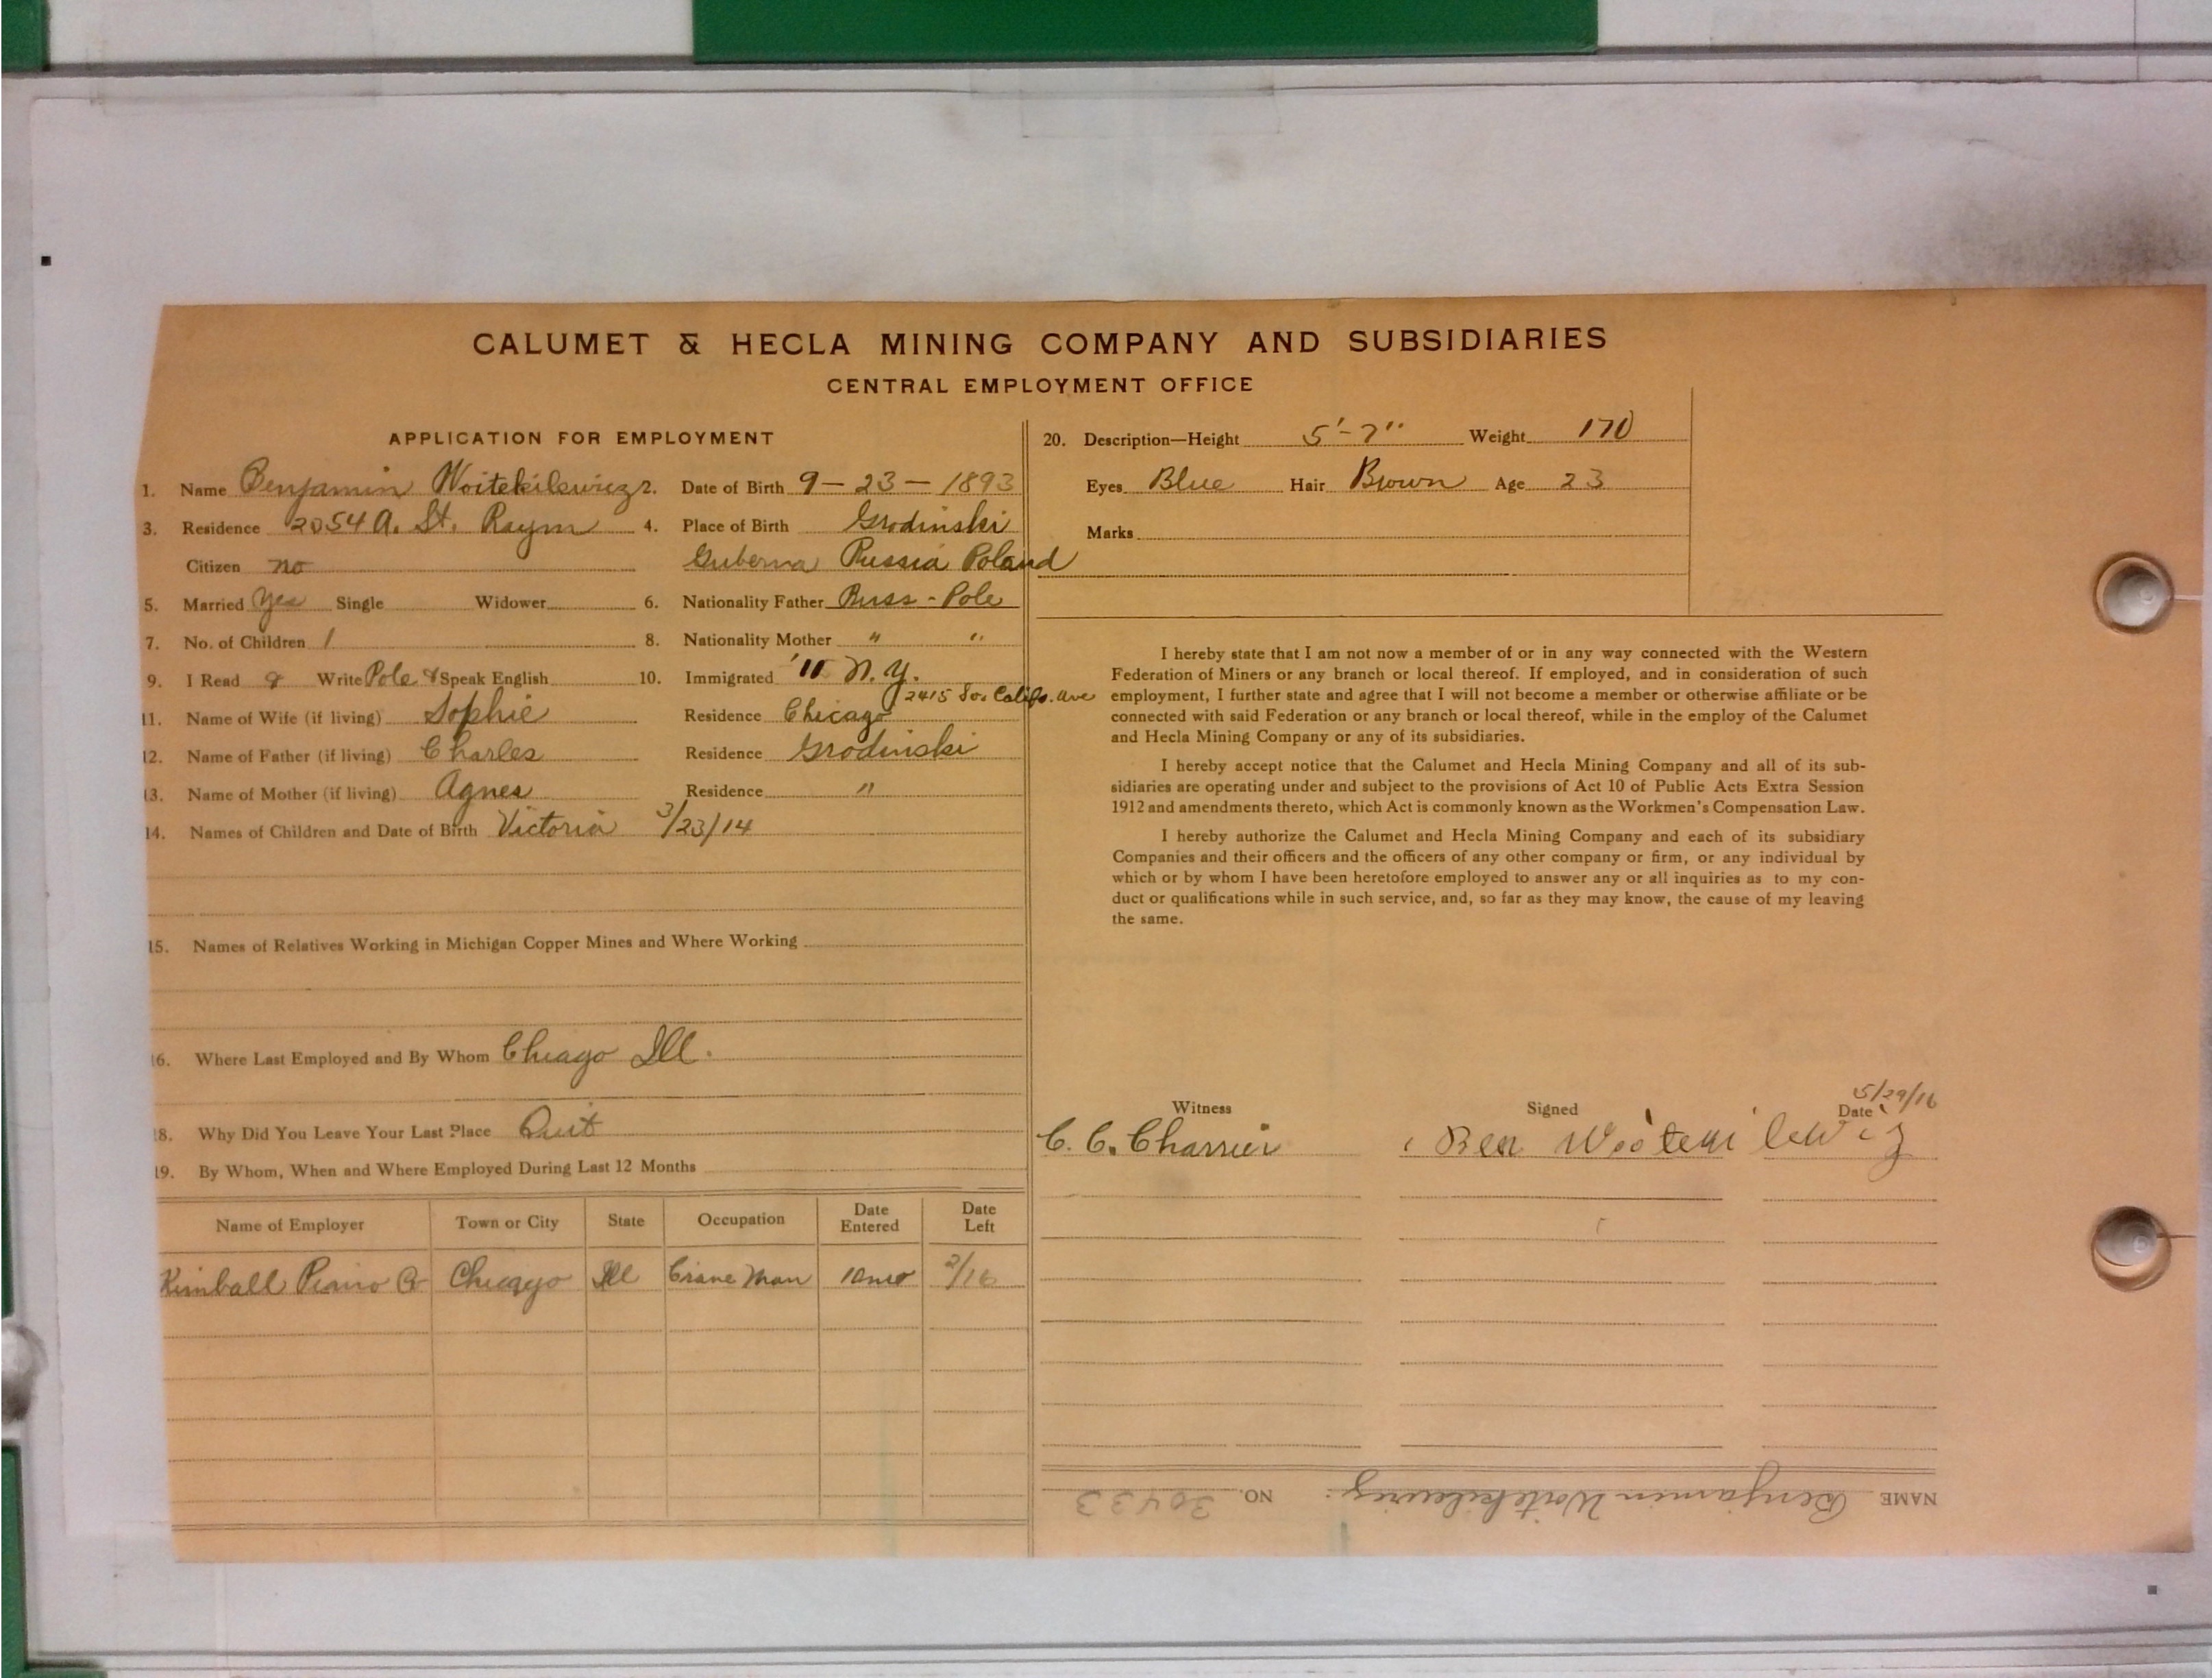 CALUMET & HECLA MINING COMPANY AND SUBSIDIARIES
CENTRAL EMPLOYMENT OFFICE
APPLICATION FOR EMPLOYMENT
1. Name Benjamin Woitekilewicz 2. Date of Birth 9-23-1893
3. Residence 2054 A. St. Raym 4. Place of Birth Grodinski
Citizen no Guberna Russia Poland
5. Married Yes Single Widower 6. Nationality Father Russ-Pole
7. No. of Children 1 8. Nationality Mother " "
9. I Read & Write Pole & Speak English 10. Immigrated '11 N.Y.
11. Name of Wife (if living) Sophie Residence Chicago 2415 So. Califo. Ave
12. Name of Father (if living) Charles Residence Grodinski
13. Name of Mother (if living) Agnes Residence "
14. Names of Children and Date of Birth Victoria 3/23/14
15. Names of Relatives Working in Michigan Copper Mines and Where Working
16. Where Last Employed and By Whom Chicago Ill.
18. Why Did You Leave Your Last Place Quit
19. By Whom, When and Where Employed During Last 12 Months
Name of Employer Town or City State Occupation Date Entered Date Left
Kimball Piano Co Chicago Ill Crane Man 10 mo 2/16
20. Description—Height 5'-7" Weight 170
Eyes Blue Hair Brown Age 23
Marks
I hereby state that I am not now a member of or in any way connected with the Western
Federation of Miners or any branch or local thereof. If employed, and in consideration of such
employment, I further state and agree that I will not become a member or otherwise affiliate or be
connected with said Federation or any branch or local thereof, while in the employ of the Calumet
and Hecla Mining Company or any of its subsidiaries.
I hereby accept notice that the Calumet and Hecla Mining Company and all of its sub-
sidiaries are operating under and subject to the provisions of Act 10 of Public Acts Extra Session
1912 and amendments thereto, which Act is commonly known as the Workmen's Compensation Law.
I hereby authorize the Calumet and Hecla Mining Company and each of its subsidiary
Companies and their officers and the officers of any other company or firm, or any individual by
which or by whom I have been heretofore employed to answer any or all inquiries as to my con-
duct or qualifications while in such service, and, so far as they may know, the cause of my leaving
the same.
Witness Signed Date 5/29/16
C. C. Charrier Ben Woitekilewicz
NAME Benjamin Woitekilewicz NO. 30433